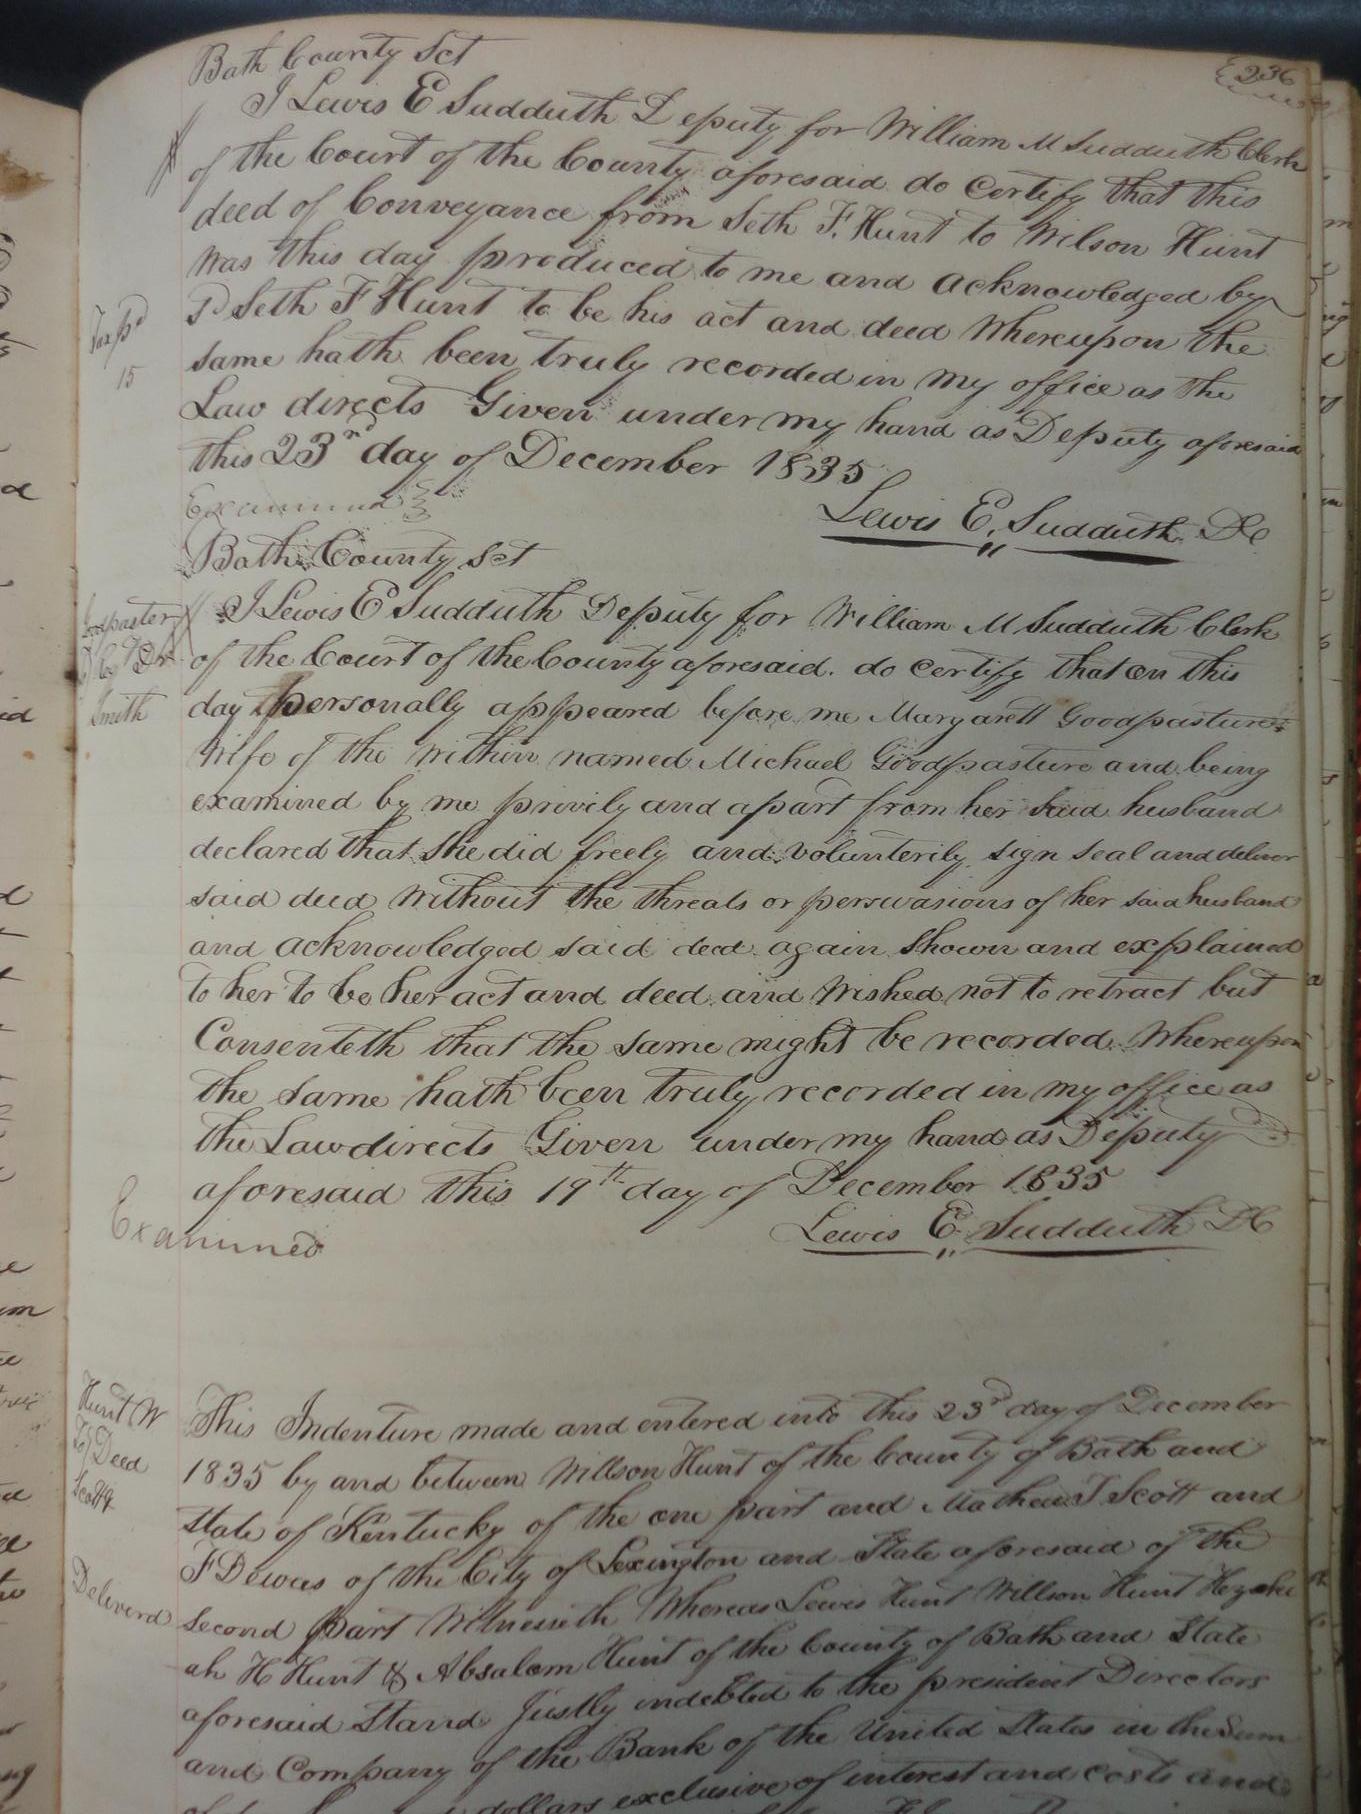 236
Bath County Sct
I Lewis E Sudduth Deputy for William M Sudduth Clerk
of the Court of the County aforesaid do certify that this
deed of Conveyance from Seth F. Hunt to Wilson Hunt
was this day produced to me and acknowledged by
Sd Seth F Hunt to be his act and deed Whereupon the
Tax pd
15
same hath been truly recorded in my office as the
Law directs Given under my hand as Deputy aforesaid
this 23rd day of December 1835
Examined
Lewis E. Sudduth DC
Bath County Sct
Goodpaster
Smith
I Lewis E Sudduth Deputy for William M Sudduth Clerk
of the Court of the County aforesaid. do certify that on this
day personally appeared before me Margarett Goodpasture
Wife of the within named Michael Goodpasture and being
examined by me privily and apart from her said husband
declared that she did freely and volunterily sign seal and deliver
said deed Without the threats or perswasions of her said husband
and acknowledged said deed again shown and explained
to her to be her act and deed and Wished not to retract but
Consenteth that the same might be recorded Whereupon
the same hath been truly recorded in my office as
the Law directs Given under my hand as Deputy
aforesaid this 19th day of December 1835
Examined
Lewis E. Sudduth DC
Hunt W
To/Deed
Scott &
Deliverd
This Indenture made and entered into this 23d day of December
1835 by and between Willson Hunt of the County of Bath and
State of Kentucky of the one part and Mathew T. Scott and
F Dewees of the City of Lexington and State aforesaid of the
second part Witnesseth Whereas Lewis Hunt Willson Hunt Hezeki
ah H Hunt & Absalom Hunt of the County of Bath and State
aforesaid Stand Justly indebted to the president Directors
and Company of the Bank of the United States in the Sum
dollars exclusive of interest and costs and